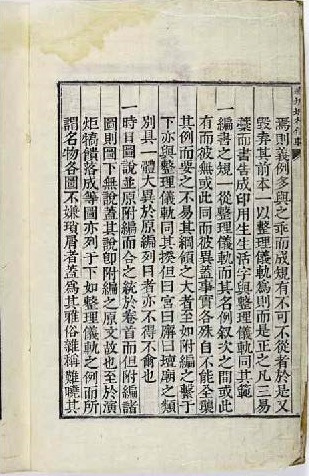 焉則義例多與之乖而成規有不可不從者於是又
毀弃其前本一以整理儀軌爲則而是正之凡三易
藁而書告成印用生生活字與整理儀軌同其範
一編書之規一從整理儀軌而其名例叙次之間或此
有而彼無或此同而彼異蓋事實各殊自不能全與
其例而要之不易其綱領之大者至如附編之繫于
下亦與整理儀軌同其揆但曰宮曰廨曰壇廟之類
別具一體大異於原編列目者亦不得不爾也
一時日圖說並原附編而合之統於卷首而但附編諸
圖則圖下無說蓋其說卽附編之原文故也至於演
炬犒饋落成等圖亦列于下如整理儀軌之例而所
謂名物各圖不嫌瑣屑者蓋爲其雅俗雜稱難曉其